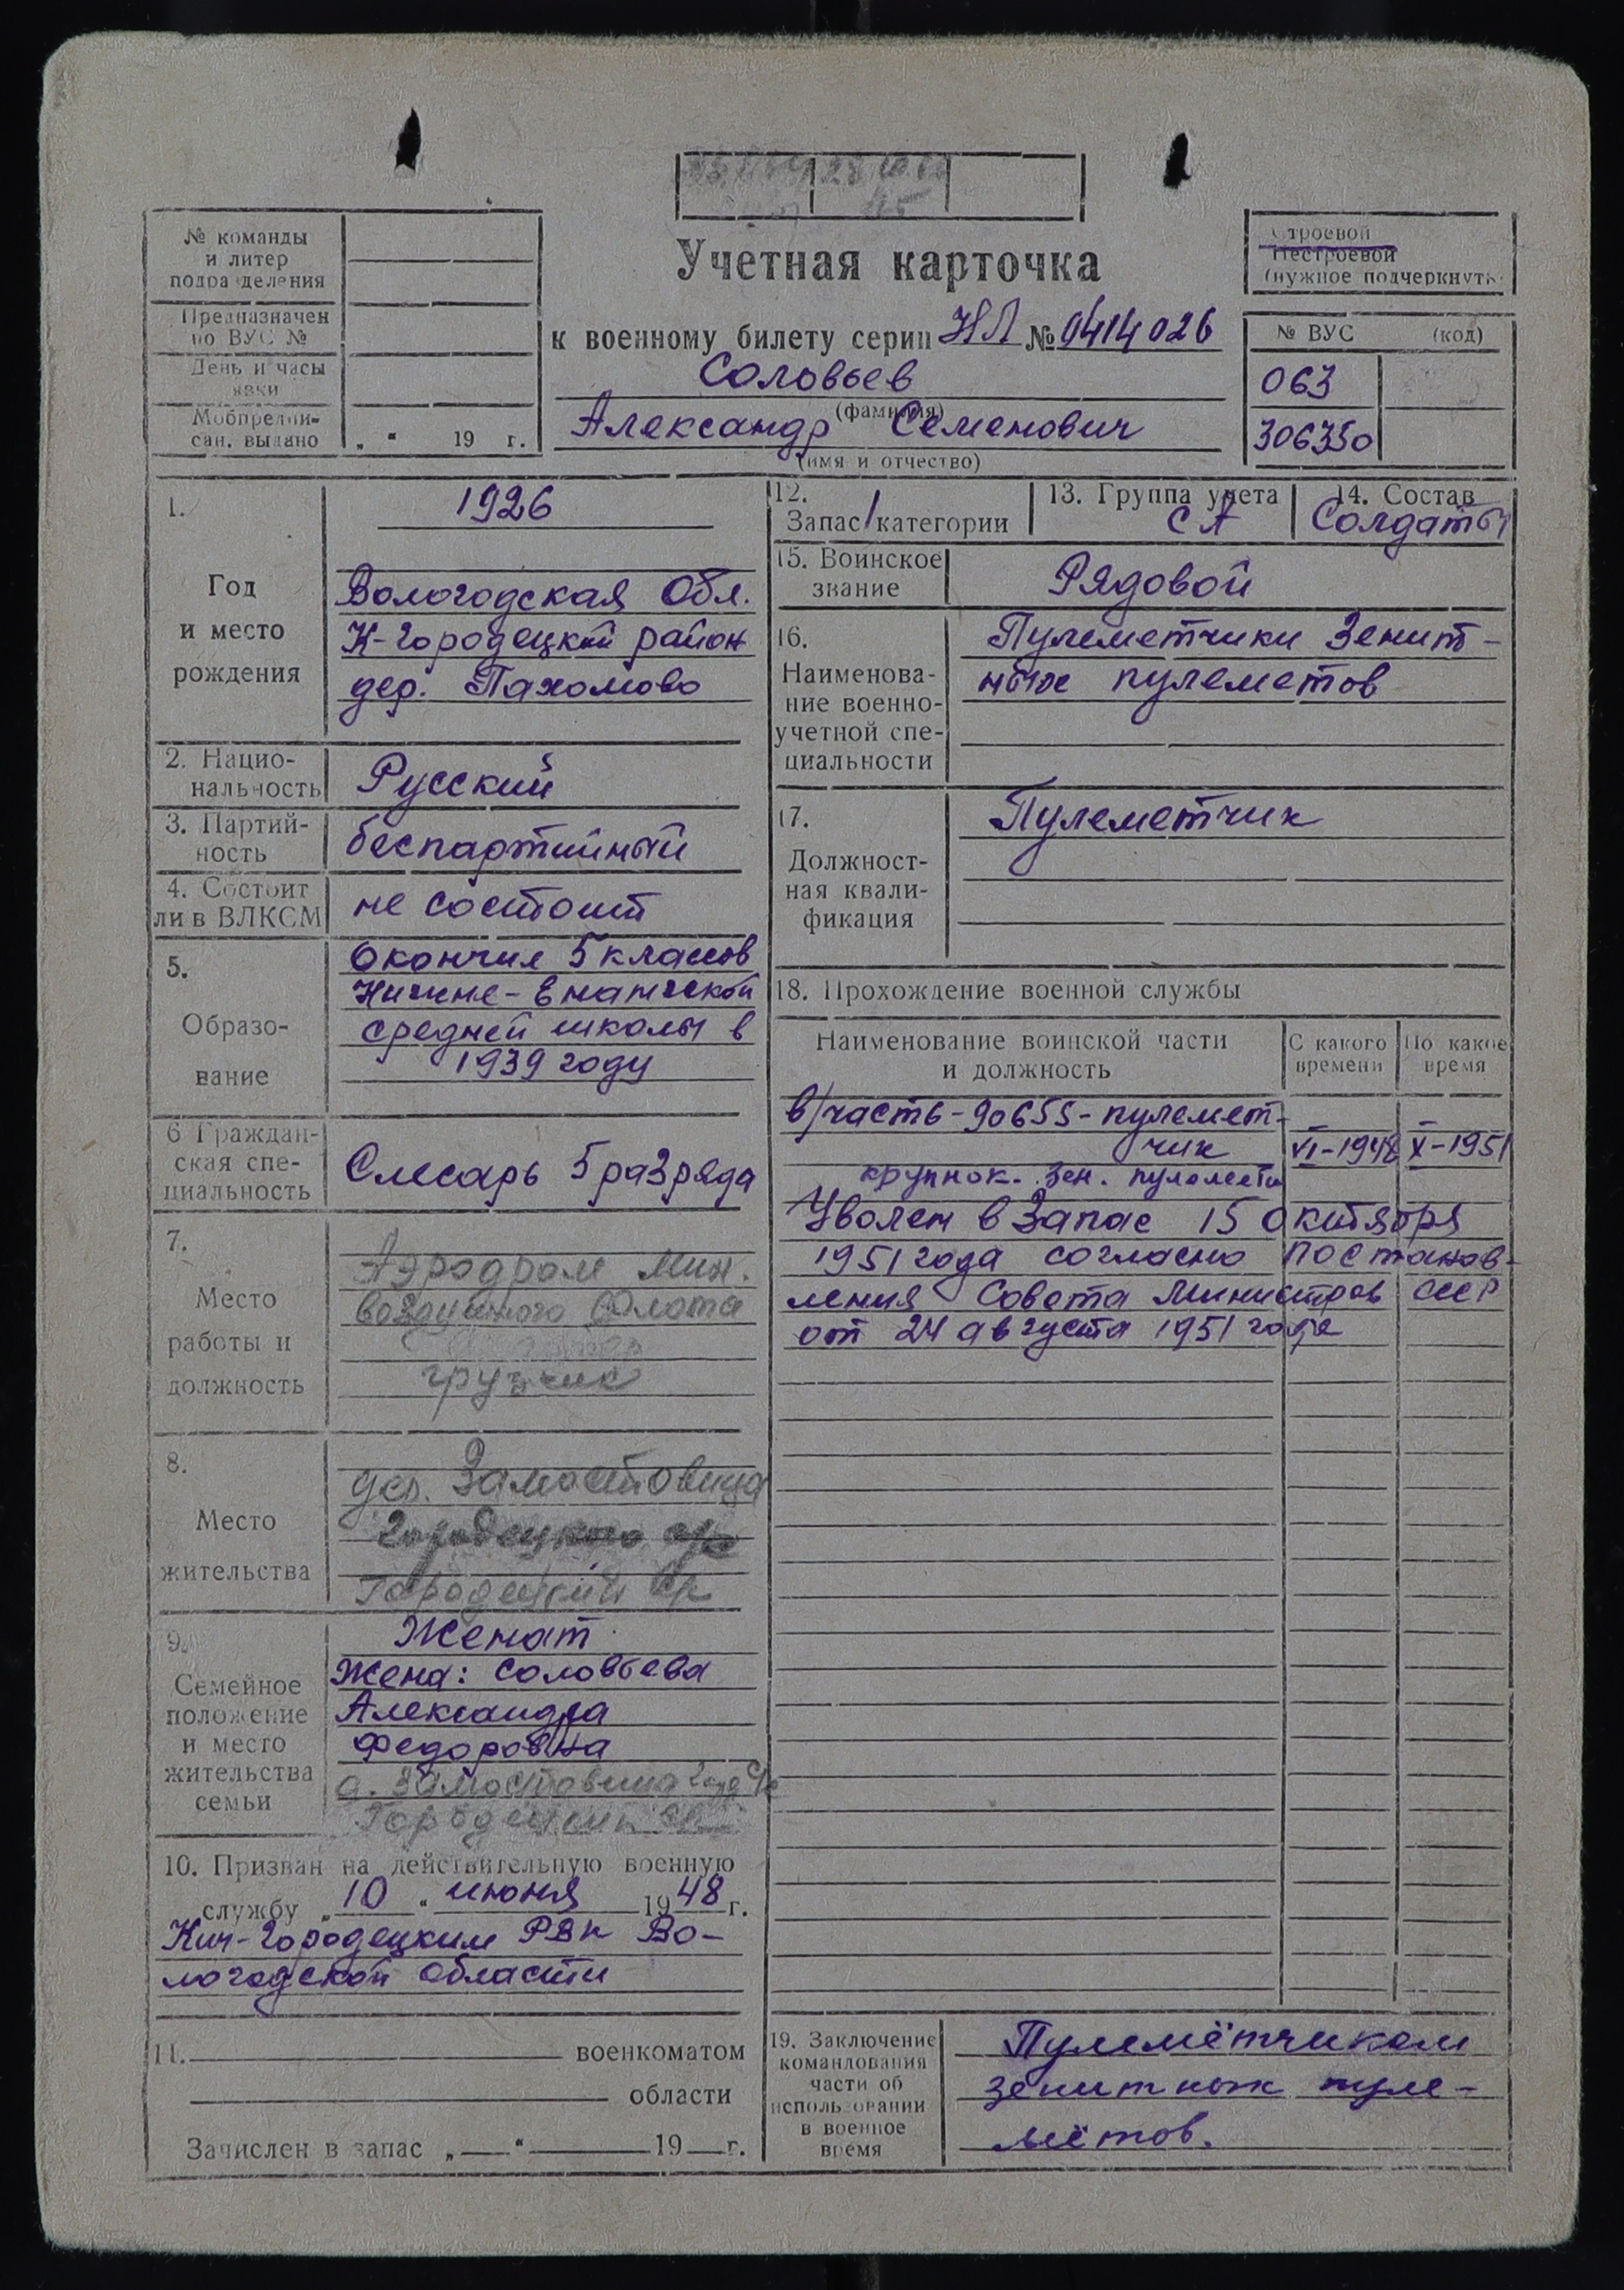 № команды
и литер
подразделения
Предназначен
по ВУС №
День и часы
явки
Мобпредпи-
сан. выдано „ “ 19 г.
Учетная карточка
к военному билету серии НЛ № 0414026
Соловьев
(фамилия)
Александр Семенович
(имя и отчество)
Строевой
Нестроевой
(нужное подчеркнуть)
№ ВУС (код)
063
306350
1.
Год
и место
рождения
1926
Вологодская Обл.
К-Городецкий район
дер. Пахомово
2. Нацио-
нальность
Русский
3. Партий-
ность
беспартийный
4. Состоит
ли в ВЛКСМ
не состоит
5.
Образо-
вание
Окончил 5 классов
Нижне-Енангской
средней школы в
1939 году
6 Граждан-
ская спе-
циальность
Слесарь 5 разряда
7.
Место
работы и
должность
Аэродром Мин.
воздушного Флота
грузчик
8.
Место
жительства
дер. Замостовица
Городецкого с/с
Городецкий с/с
9.
Семейное
положение
и место
жительства
семьи
Женат
Жена: Соловьева
Александра
Федоровна
д. Замостовица Город с/с
Городецкий
10. Призван на действительную военную
службу „10“ июня 1948 г.
Кич-Городецким РВК Во-
логодской области
11. военкоматом
области
Зачислен в запас „ “ 19 г.
12.
Запас 1 категории
13. Группа учета
СА
14. Состав
Солдаты
15. Воинское
звание
Рядовой
16.
Наименова-
ние военно-
учетной спе-
циальности
Пулеметчики Зенит-
ных пулеметов
17.
Должност-
ная квали-
фикация
Пулеметчик
18. Прохождение военной службы
Наименование воинской части
и должность
С какого
времени
По какое
время
в/часть-90655-пулемет-
чик VI-1948 X-1951
крупнок. зен. пулемета
Уволен в Запас 15 октября
1951 года согласно Постанов-
ления Совета Министров СССР
от 24 августа 1951 года
19. Заключение
командования
части об
использовании
в военное
время
Пулемётчиком
зенитных пуле-
мётов.